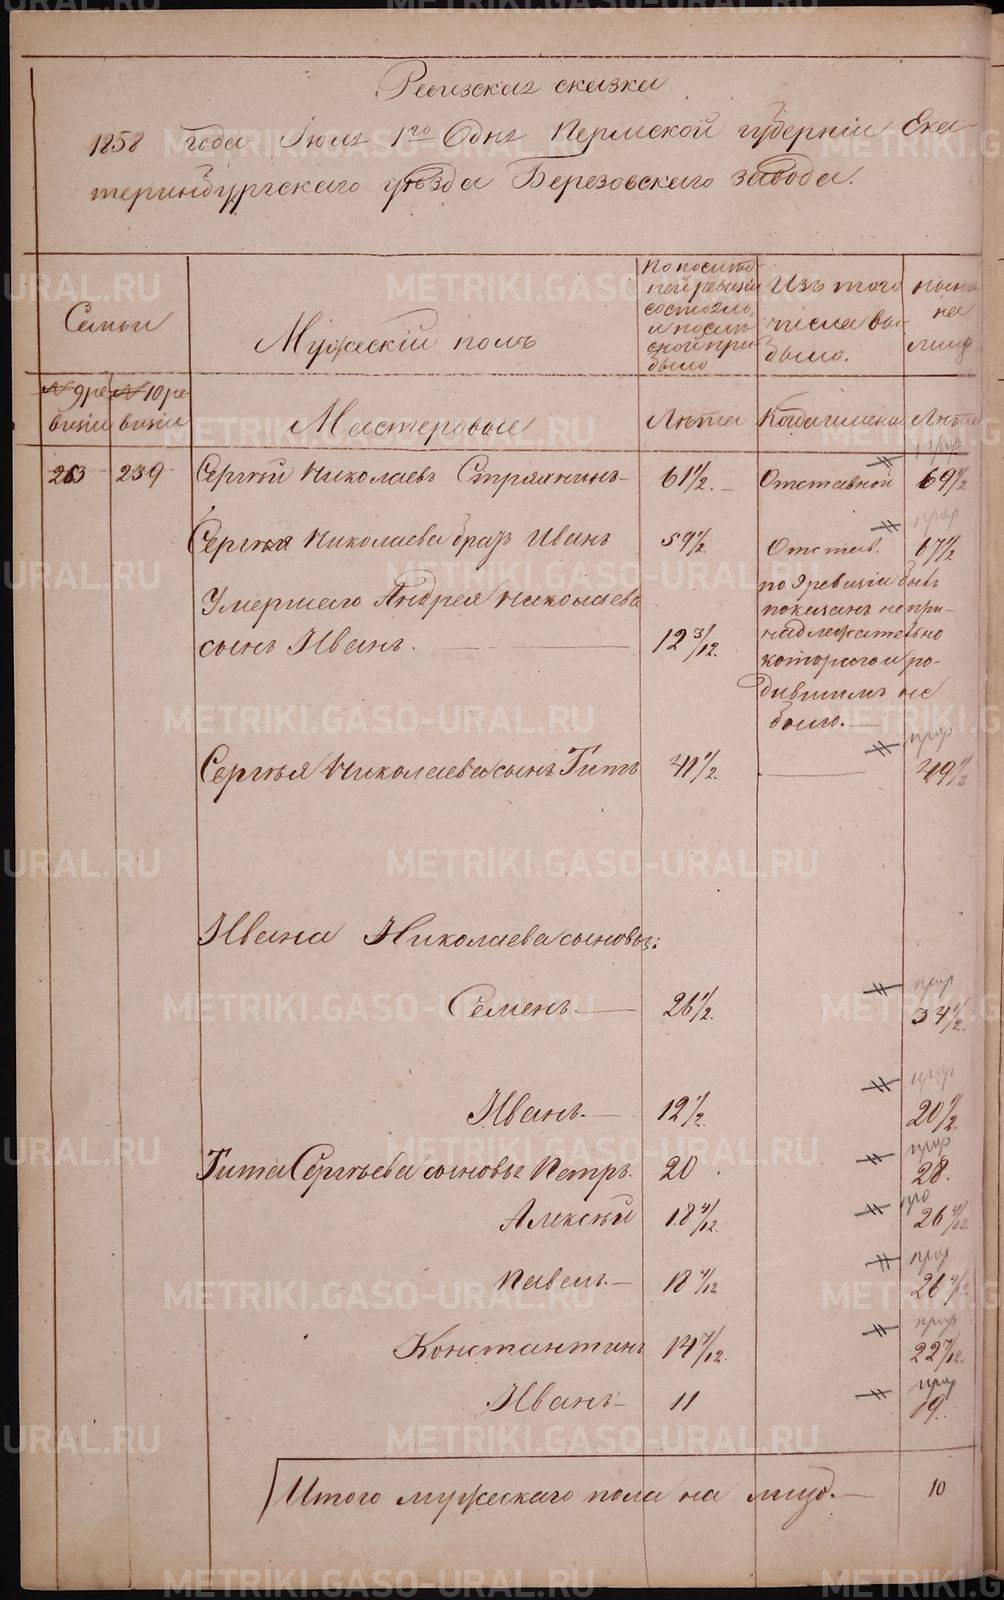 Ревизская сказка
1858 года Июля 1го дня Пермской губернiи Ека-
теринбургскаго уѣзда Березовскаго завода.
Семьи
Мужескiй полъ
По послѣд-
ней ревизiи
состояло,
и послѣ
оной при-
было
Изъ того
числа вы-
было.
нынѣ
на
лицо
№ 9 ре-
визiи
№ 10 ре-
визiи
Мастеровые
Лѣта
Когда именно
Лѣта
263 239 Сергѣй Николаевъ Стряхнинъ 61 1/2. Отставной 69 1/2
Сергѣя Николаева братъ Иванъ 59 1/2 Отстав. 67 1/2
Умершаго Андрея Николаева
сынъ Иванъ. 12 3/12.
по 9 ревизiи былъ
показанъ непри-
надлежательно
котораго и ро-
дившимъ не
было.
Сергѣя Николаева сынъ Титъ 41 1/2. 49 1/2
Ивана Николаева сыновья:
Семенъ 26 1/2. 34 1/2.
Иванъ. 12 1/2. 20 1/2.
Тита Сергѣева сыновья Петръ. 20 28.
Алексѣй 18 4/12. 26 4/12
Павелъ. 18 4/12 26 4/12
Константинъ 14 7/12. 22 7/12.
Иванъ 11 19.
Итого мужескаго пола на лицо. 10
METRIKI.GASO-URAL.RU